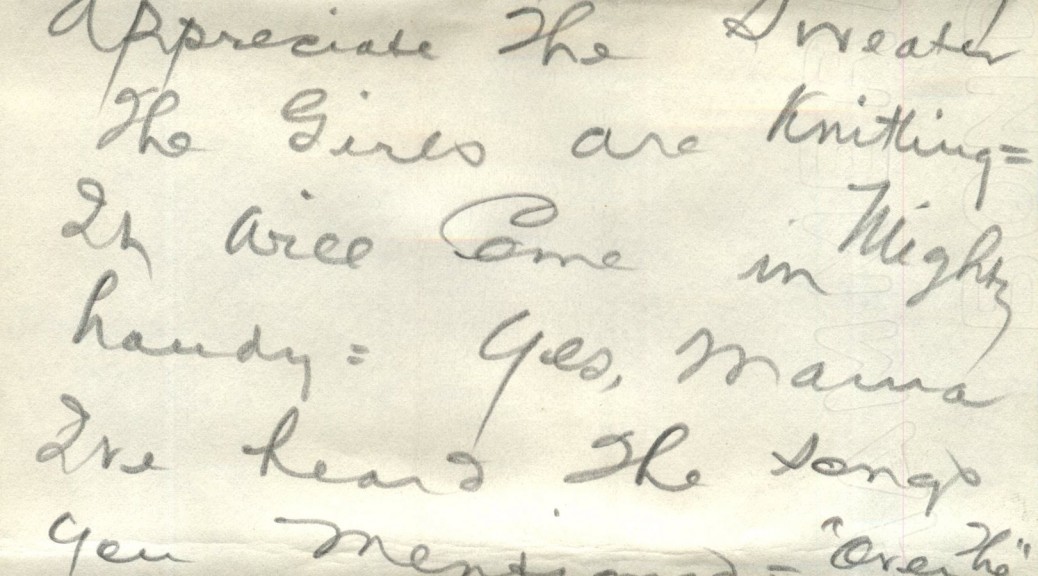 appreciate The Sweater
The Girls are Knitting=
It will Come in Mighty
handy= Yes, Mama
I've heard The songs
you Mentioned = "Over The"